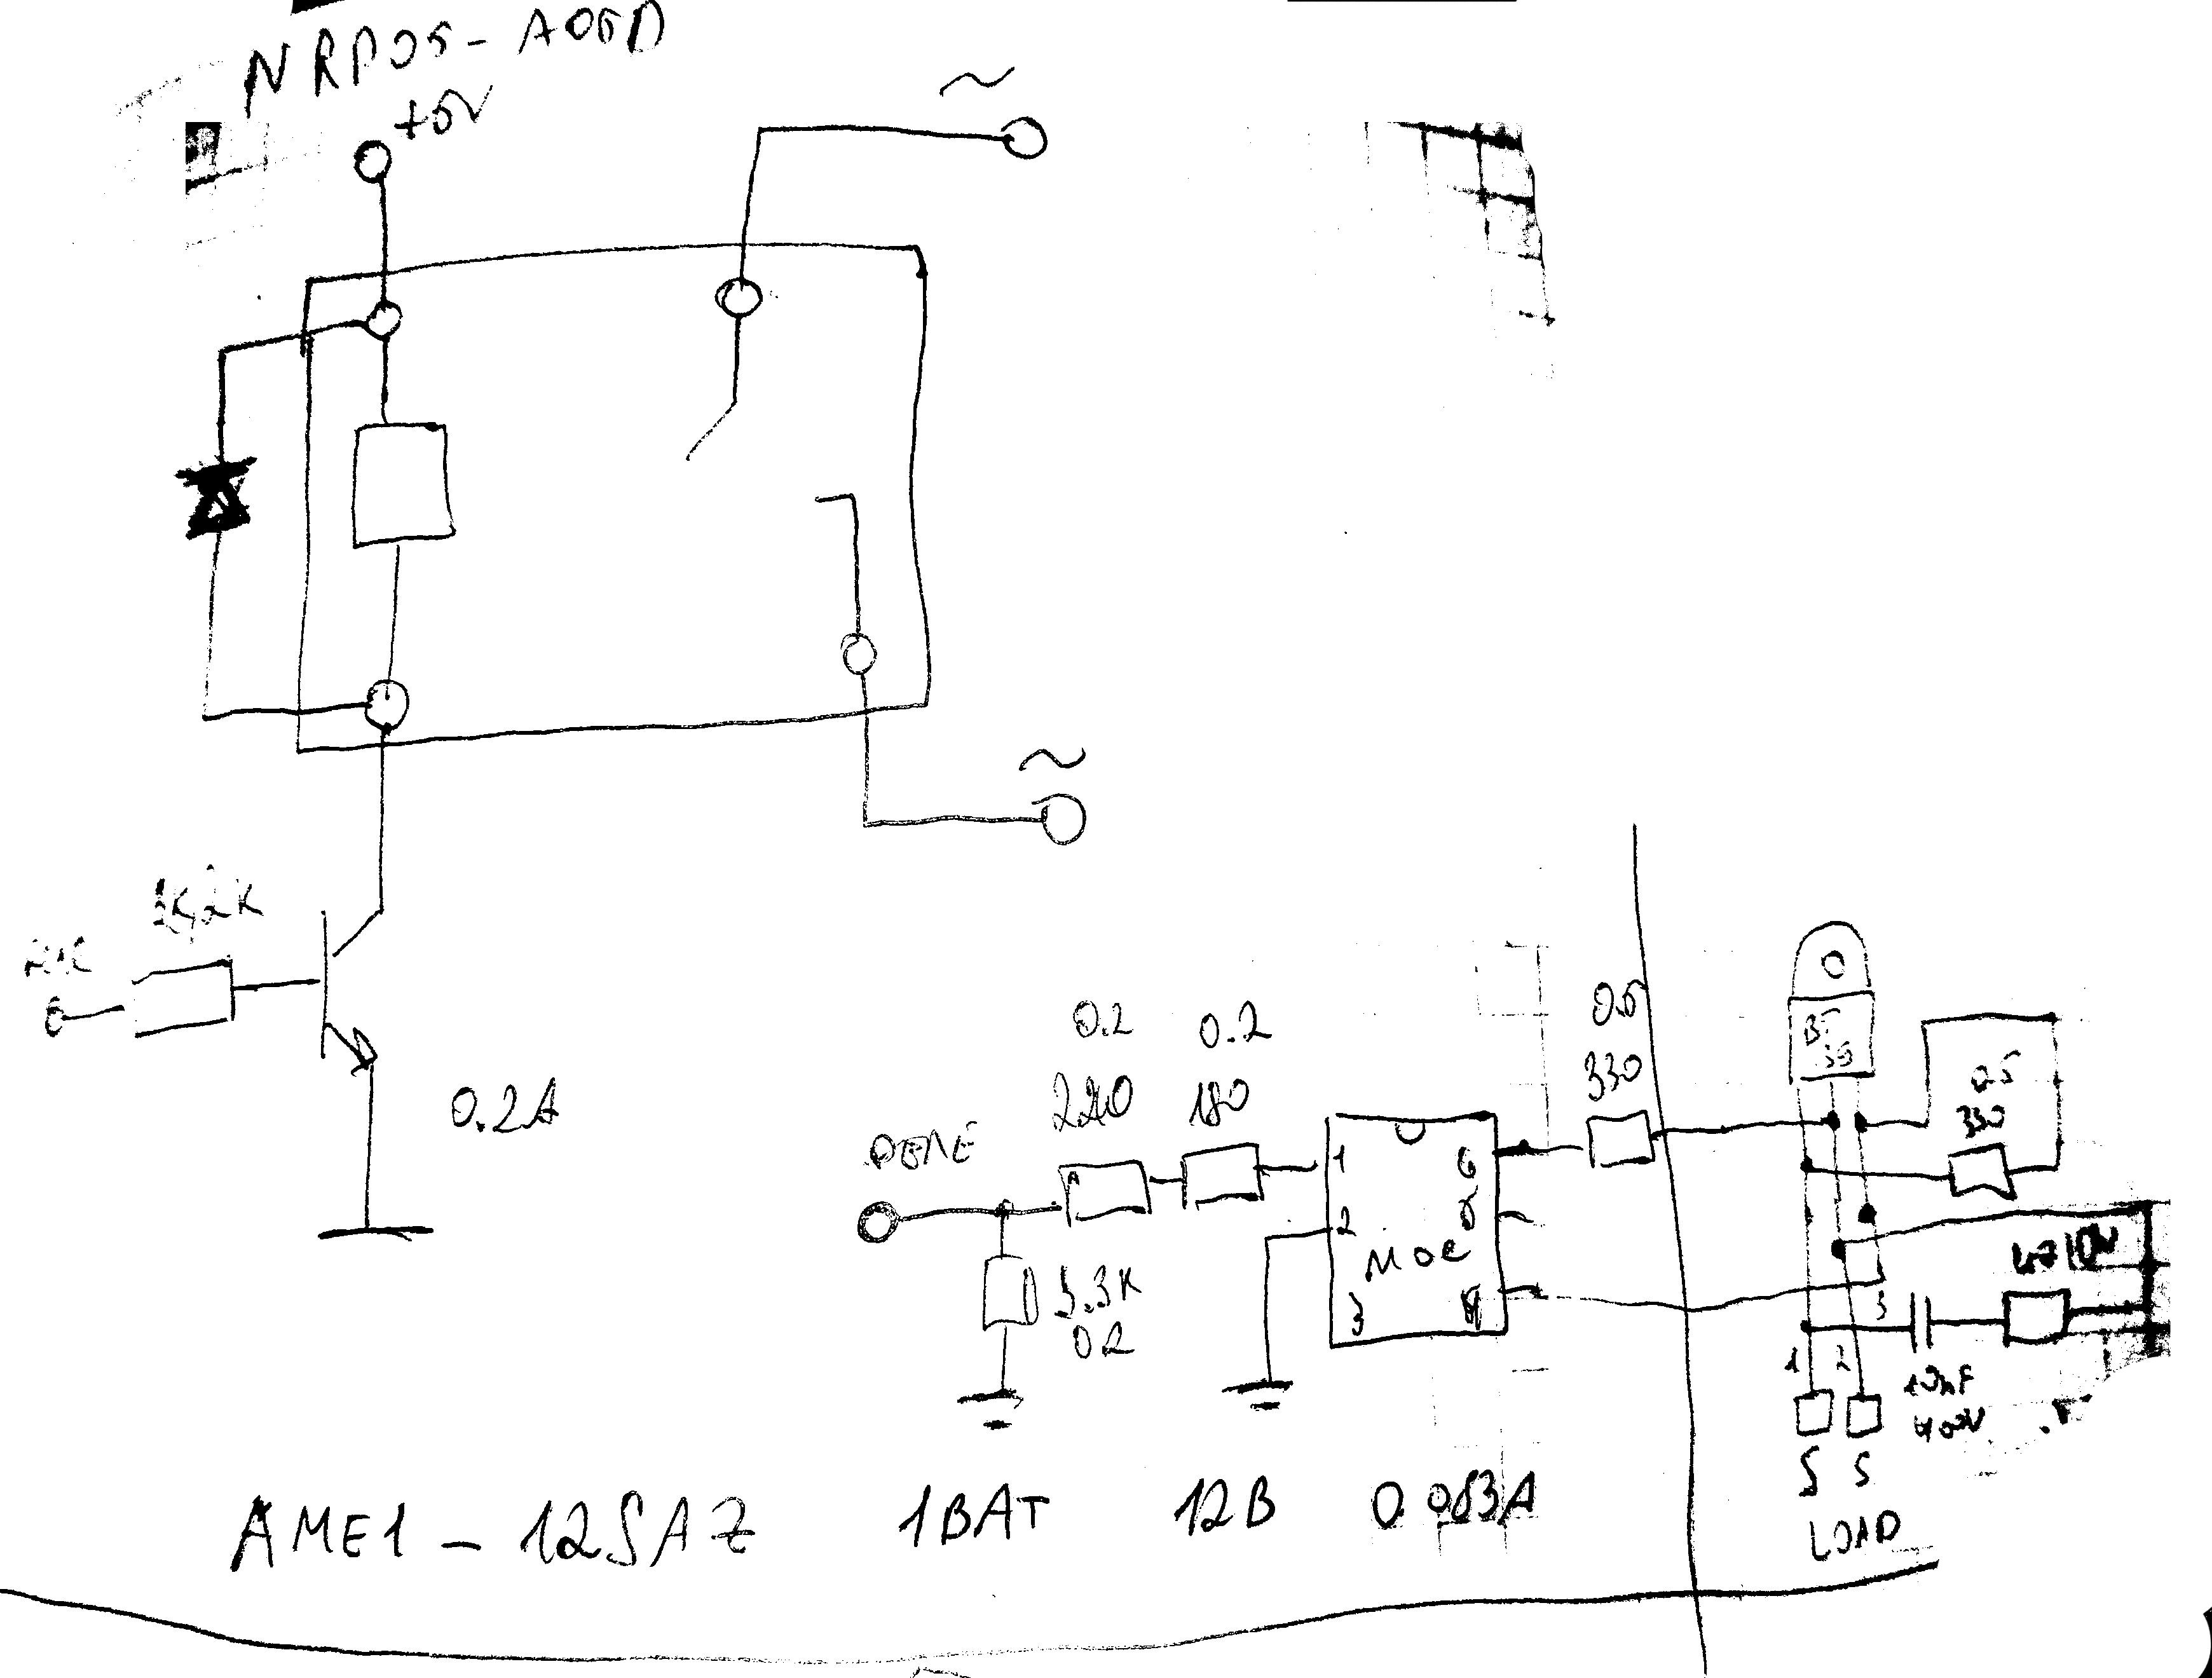 +5V
~
~
0.2A
0.2
220
0.2
180
0.5
330
1
2
3
6
MOC
3.3K
0.2
BT
0.5
330
3
1
2
10nF
400V
S S
LOAD
AME1-12SAZ 1BAT 12B 0.083A